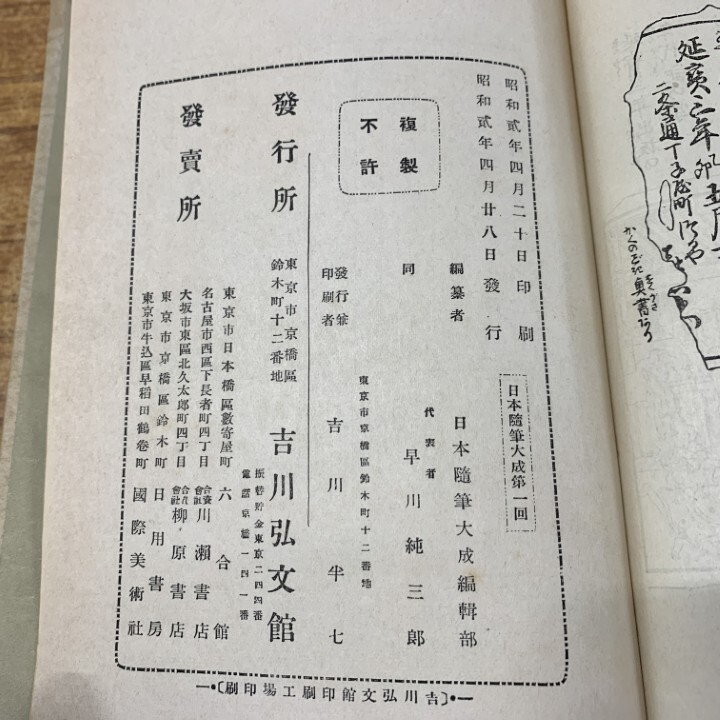 昭和貳年四月二十日印刷
昭和貳年四月廿八日發行
日本隨筆大成第一回
複製
不許
編纂者 日本隨筆大成編輯部
同 代表者 早川純三郎
東京市京橋區鈴木町十二番地
發行兼
印刷者 吉川半七
發行所 東京市京橋區
鈴木町十二番地 吉川弘文館
振替貯金東京二四四番
電話京橋一四一番
發賣所
東京市日本橋區數寄屋町 六合館
名古屋市西區下長者町四丁目 合資會社 川瀬書店
大坂市東區北久太郎町四丁目 合資會社 柳原書店
東京市京橋區鈴木町 日用書房
東京市牛込區早稻田鶴卷町 國際美術社
(吉川弘文館印刷工場印刷)
延寳三年卯
二条通丁子屋町
奥書